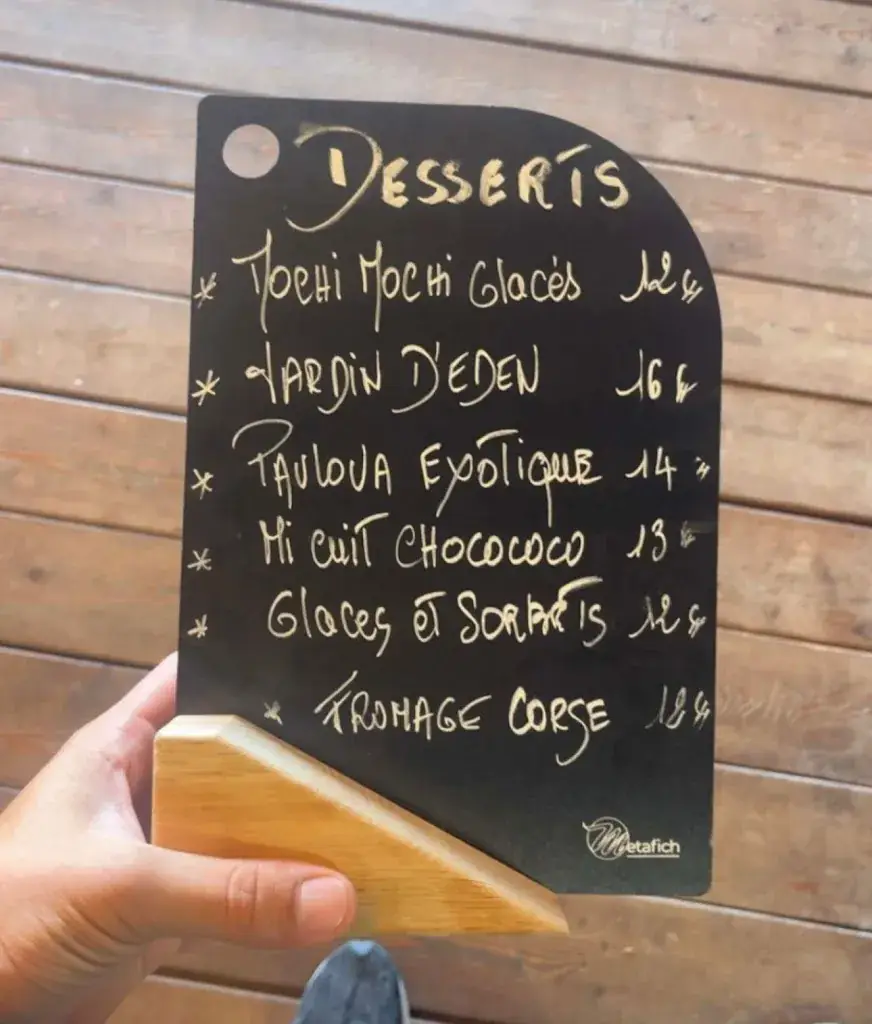 DESSERTS
* MOCHI MOCHI GLACÉS 12 €
* JARDIN D'EDEN 16 €
* PAVLOVA EXOTIQUE 14 €
* Mi CUIT CHOCOCOCO 13 €
* Glaces et SORBETS 12 €
* FROMAGE CORSE 12 €
Metafich